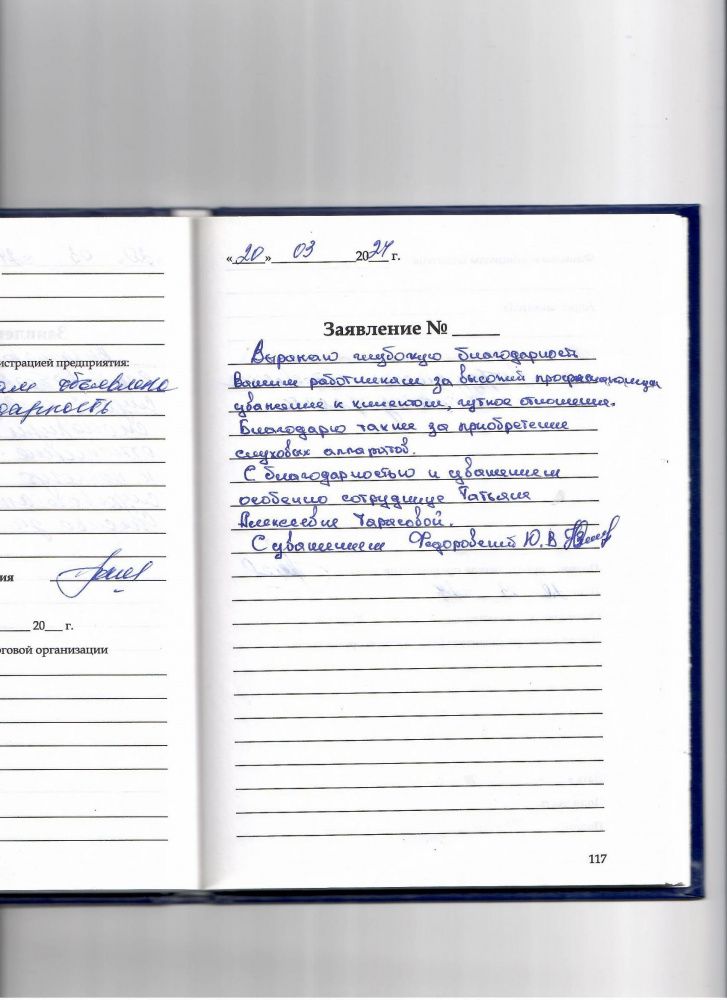 «20» 03 2024 г.
Заявление №
Выражаю глубокую благодарность
Вашим работникам за высокий профессионализм
уважение к клиентам, чуткое отношение.
Благодарю также за приобретение
слуховых аппаратов.
С благодарностью и уважением
особенно сотруднице Татьяне
Алексеевне Тарасовой.
С уважением Федоровский Ю.В
117
истрацией предприятия:
объявлена
дарность
ия
20 г.
рговой организации